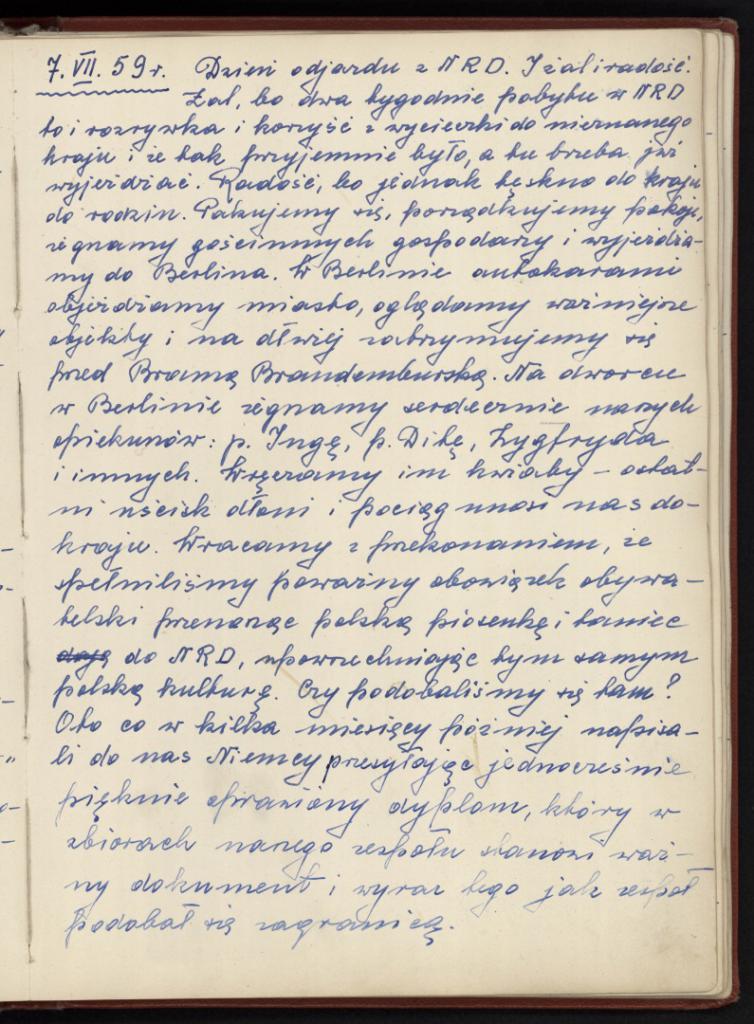 7. VII. 59 r. Dzień odjazdu z NRD. I żal i radość.
Żal, bo dwa tygodnie pobytu w NRD
to i rozrywka i korzyść z wycieczki do nieznanego
kraju i że tak przyjemnie było, a tu trzeba już
wyjeżdżać. Radość, bo jednak tęskno do kraju
do rodzin. Pakujemy się, porządkujemy pokoje,
żegnamy gościnnych gospodarzy i wyjeżdża-
my do Berlina. W Berlinie autokarami
objeżdżamy miasto, oglądamy ważniejsze
objekty i na dłużej zatrzymujemy się
przed Bramą Brandemburską. Na dworcu
w Berlinie żegnamy serdecznie naszych
opiekunów: p. Ingę, p. Ditę, Zygfryda
i innych. Wręczamy im kwiaty – ostat-
ni uścisk dłoni i pociąg unosi nas do-
kraju. Wracamy z przekonaniem, że
spełniliśmy poważny obowiązek obywa-
telski przenosząc polską piosenkę i taniec
do NRD, upowszechniając tym samym
polską kulturę. Czy podobaliśmy się tam?
Oto co w kilka miesięcy później napisa-
li do nas Niemcy przesyłając jednocześnie
pięknie oprawiony dyplom, który w
zbiorach naszego zespołu stanowi waż-
ny dokument i wyraz tego jak zespół
podobał się zagranicą.